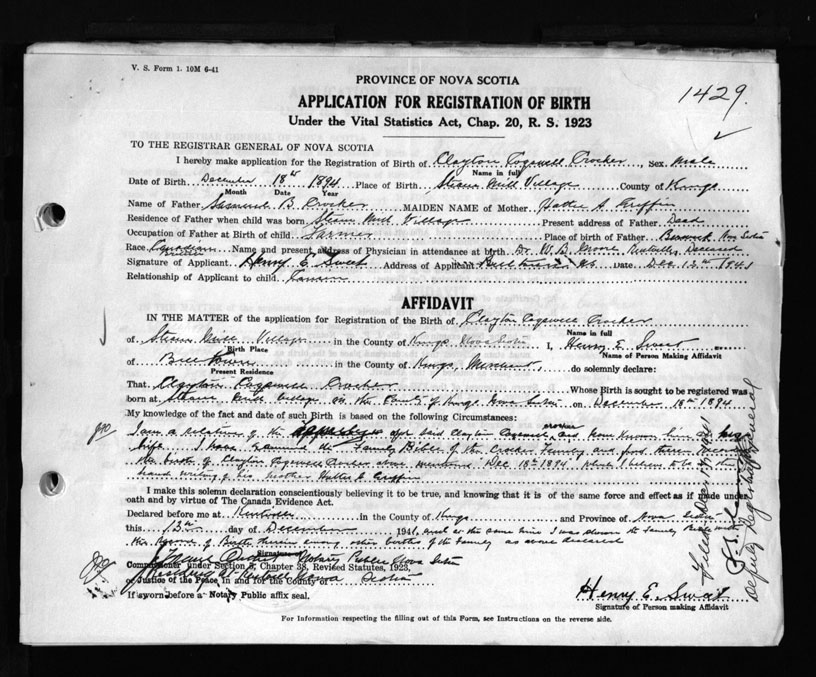 V. S. Form 1. 10M 6-41
PROVINCE OF NOVA SCOTIA
1429.
APPLICATION FOR REGISTRATION OF BIRTH
Under the Vital Statistics Act, Chap. 20, R. S. 1923
TO THE REGISTRAR GENERAL OF NOVA SCOTIA
I hereby make application for the Registration of Birth of Clayton Cogswell Crocker, Sex male
Name in full
Date of Birth December 18th 1894 Place of Birth Steam Mill Village County of Kings
Month Date Year
Name of Father Samuel B. Crocker MAIDEN NAME of Mother Hattie A. Griffin
Residence of Father when child was born Steam Mill Village Present address of Father Dead
Occupation of Father at Birth of child Farmer Place of birth of Father Berwick Nova Scotia
Race Canadian Name and present address of Physician in attendance at birth Dr. W. B. Moore Kentville, Deceased
Signature of Applicant Henry E. Sweet Address of Applicant N.S. Date Dec. 13th 1941
Relationship of Applicant to child Cousin
AFFIDAVIT
IN THE MATTER of the application for Registration of the Birth of Clayton Cogswell Crocker
Name in full
of Steam Mill Village in the County of Kings Nova Scotia I, Henry E. Sweet
Birth Place Name of Person Making Affidavit
of in the County of Kings, Merchant, do solemnly declare:
Present Residence
That Clayton Cogswell Crocker Whose Birth is sought to be registered was
born at Steam Mill Village in the County of Kings Nova Scotia on December 18th 1894
My knowledge of the fact and date of such Birth is based on the following Circumstances:
I am a relation of the said Clayton Cogswell Crocker and have known him
birth. I have examined the Family Bible of the Crocker Family and find there recorded
the birth of Clayton Cogswell Crocker above mentioned Dec 18th 1894, which I believe to be in the
hand writing of his mother Hattie A. Griffin
I make this solemn declaration conscientiously believing it to be true, and knowing that it is of the same force and effect as if made under
oath and by virtue of The Canada Evidence Act.
Declared before me at Kentville in the County of Kings and Province of Nova Scotia
this 13th day of December 1941, and at the same time I was shown the Family Bible with
the Record of Birth therein among other births of the Family as above declared
Signature Notary Public Nova Scotia
Commissioner under Section 5, Chapter 38, Revised Statutes, 1923,
or Justice of the Peace in and for the County of
If sworn before a Notary Public affix seal.
Henry E. Sweet
Signature of Person making Affidavit
For Information respecting the filling out of this Form, see Instructions on the reverse side.
Deputy Registrar General